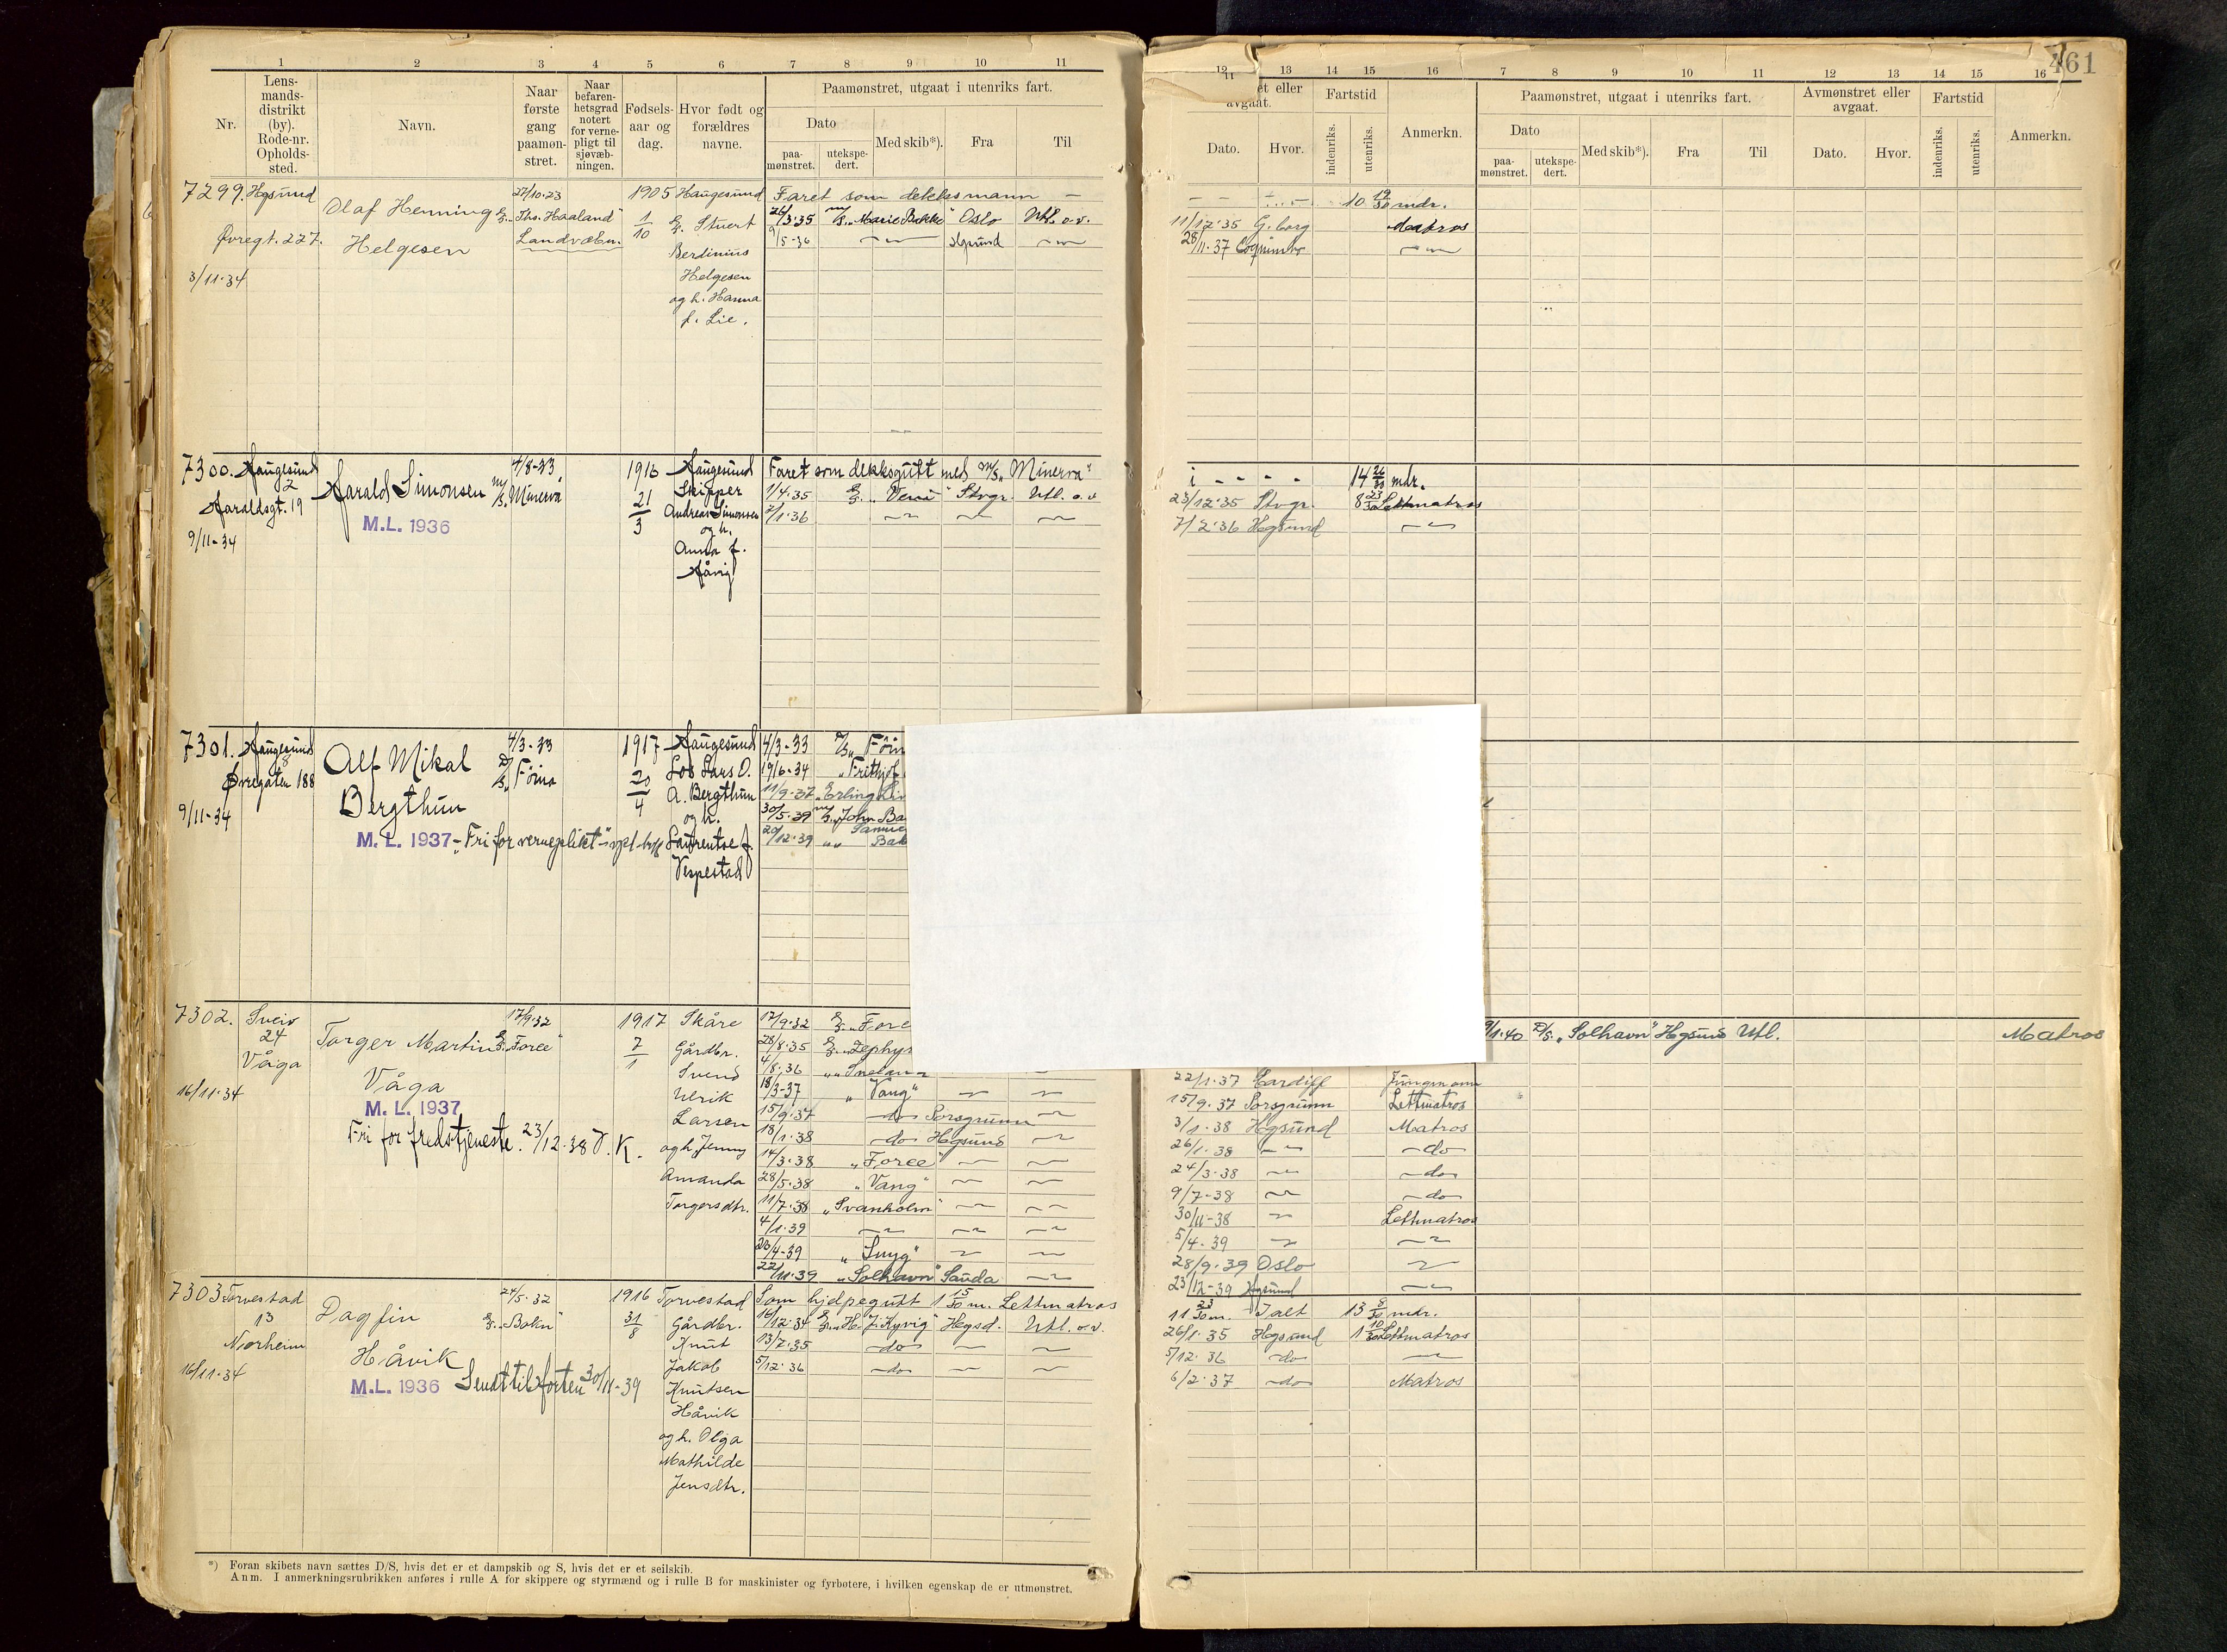 461
1 2 3 4 5 6 7 8 9 10 11
Nr.
Lens-
mands-
distrikt
(by).
Rode-nr.
Opholds-
sted.
Navn.
Naar
første
gang
paamøn-
stret.
Naar
befaren-
hetsgrad
notert
for verne-
pligt til
sjøvæb-
ningen.
Fødsels-
aar og
dag.
Hvor født og
forældres
navne.
Paamønstret, utgaat i utenriks fart.
Dato
paa-
mønstret.
utekspe-
dert.
Med skib*).
Fra
Til
12 13 14 15 16 7 8 9 10 11 12 13 14 15 16
11
et eller
avgaat.
Dato.
Hvor.
Fartstid
indenriks.
utenriks.
Anmerkn.
Paamønstret, utgaat i utenriks fart.
Dato
paa-
mønstret.
utekspe-
dert.
Med skib*).
Fra
Til
Avmønstret eller
avgaat.
Dato.
Hvor.
Fartstid
indenriks.
utenriks.
Anmerkn.
7299. Hgsund
Øvregt. 227.
3/11-34
Olaf Henning
Helgesen
27/10-23
"Ths. Haaland"
Landvæbn.
1905
1/10
Haugesund
Stuert
Berdinius
Helgesen
og h. Hanna
f. Lie.
Faret som dekksmann — 10 19/30 mdr.
26/3.35 M/S "Marie Bakke" Oslo Utl. o.v. 11/12-35 G.borg Matros
9/5-36 Hgsund 28/11-37
7300. Haugesund
2
Haraldsgt. 19
9/11-34
Harald Simonsen
M.L. 1936
4/8-33
M/S Minerva
1916
21/3
Haugesund
Skipper
Andreas Simonsen
og h.
Anna f.
Håvig
Faret som dekksgutt med M/S "Minerva" i 14 26/30 mdr.
1/4.35 "Veni" Stvgr. Utl. o.v 23/12-35 Stvgr. 8 23/30 Lettmatros
2/1-36 7/2-36 Hgsund
7301. Haugesund
8
Øvregaten 188
9/11-34
Alf Mikal
Bergthun
M.L. 1937 - "Fri for verneplikt"
4/3-33
D/S "Føina
1917
20/4
Haugesund
Los Lars O.
A. Bergthun
og h.
Laurentse f.
Vespestad
4/3-33 D/S "Føin
19/6-34 "Frithjof
11/9-37 "Erling Li
30/5-39 M/S "John Ba
20/12-39 Samue
Bak
7302. Sveio
24
Våga
16/11-34
Torger Martin
Våga
M.L. 1937
Fri for fredstjeneste. 23/12-38 V. K.
17/9-32
"Force"
1917
7/1
Skåre
Gårdbr.
Svend
Ulrik
Larsen
og h. Jenny
Amanda
Torgersdtr.
17/9-32 "Force
28/8-35 "Zephyr
4/8-36 "Snelan
18/3-37 "Vang"
15/9-37 do Porsgrunn
18/1-38 do Hgsund
14/3-38 "Force"
28/5-38 "Vang"
11/7-38 "Svanholm"
4/1-39
20/4-39 "Snyg"
22/11-39 "Solhavn" Sauda
9/1-40 D/S. "Solhavn" Hgsund Utl. Matros
22/1-37 Cardiff Jungmann
15/9-37 Porsgrunn Lettmatros
3/1-38 Hgsund Matros
26/1-38 do
24/3-38 do
9/7-38 do
30/11-38 Lettmatros
5/4-39
28/9-39 Oslo
23/12-39 Hgsund
7303 Torvestad
13
Norheim
16/11-34
Dagfin
Håvik
M.L. 1936 Sendt til forten 30/11-39
24/5-32
"Bokn"
1916
31/8
Torvestad
Gårdbr.
Knut
Jakob
Knutsen
Håvik
og h. Olga
Mathilde
Jensdtr.
Som hjelpegutt 1 15/30 m. Lettmatros 11 23/30 m. Ialt 13 8/30 mdr.
14/12-34 "H. J. Kyvig" Hgsd. Utl. o.v. 26/1-35 Hgsund 1 10/30 Lettmatros
13/7-35 do 5/12-36 do
5/12-36 do 6/2-37 do Matros
*) Foran skibets navn sættes D/S, hvis det er et dampskib og S, hvis det er et seilskib.
Anm. I anmerkningsrubrikken anføres i rulle A for skippere og styrmænd og i rulle B for maskinister og fyrbøtere, i hvilken egenskap de er utmønstret.